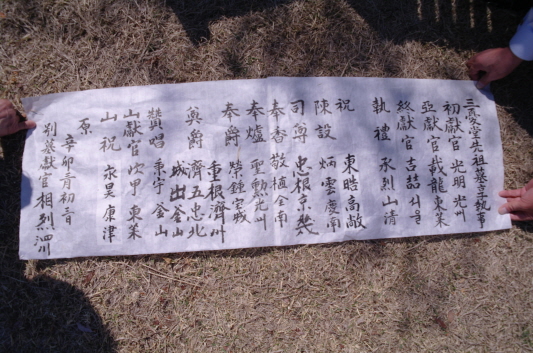 三憂堂先祖墓享執事
初獻官 光明 光州
亞獻官 載龍 東萊
終獻官 吉喆 서울
執禮 永烈 山清
祝 東晧 高敞
陳設 炳雲 慶南
司尊 忠根 京畿
奉香 敬植 全南
奉爐 聖勳 光州
奉爵 榮鍾
重根 濟州
奠爵 濟五 忠北
城出 釜山
贊唱 秉宇 釜山
山獻官 次甲 東萊
山祝 永昊 康津
原
辛卯
別墓獻官 相烈 泗川